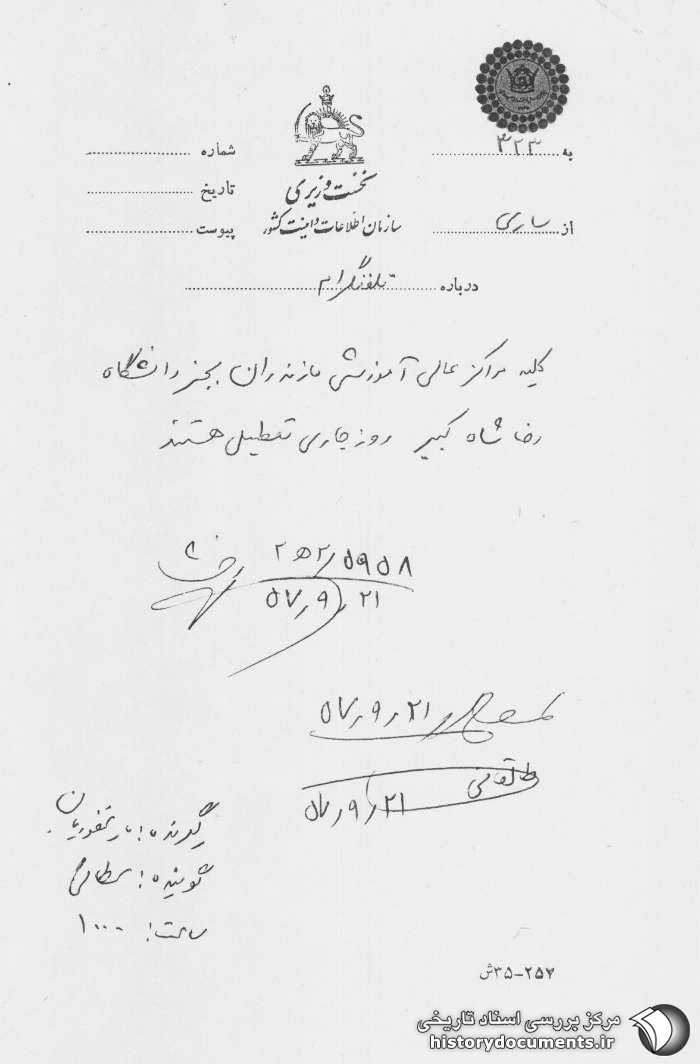 به ۳۲۳
شماره
نخست وزیری
تاریخ
از ساری
سازمان اطلاعات و امنیت کشور
پیوست
درباره تلفنگرام
کلیه مراکز عالی آموزشی مازندران بجز دانشگاه
رضا شاه کبیر روز جاری تعطیل هستند
۲ه۲/۵۹۵۸
۵۷/۹/۲۱
۵۷/۹/۲۱
طالقانی
۵۷/۹/۲۱
گیرنده:
گوینده:
ساعت: ۱۰۰۰
۳۵-۲۵۷ش
مرکز بررسی اسناد تاریخی
historydocuments.ir